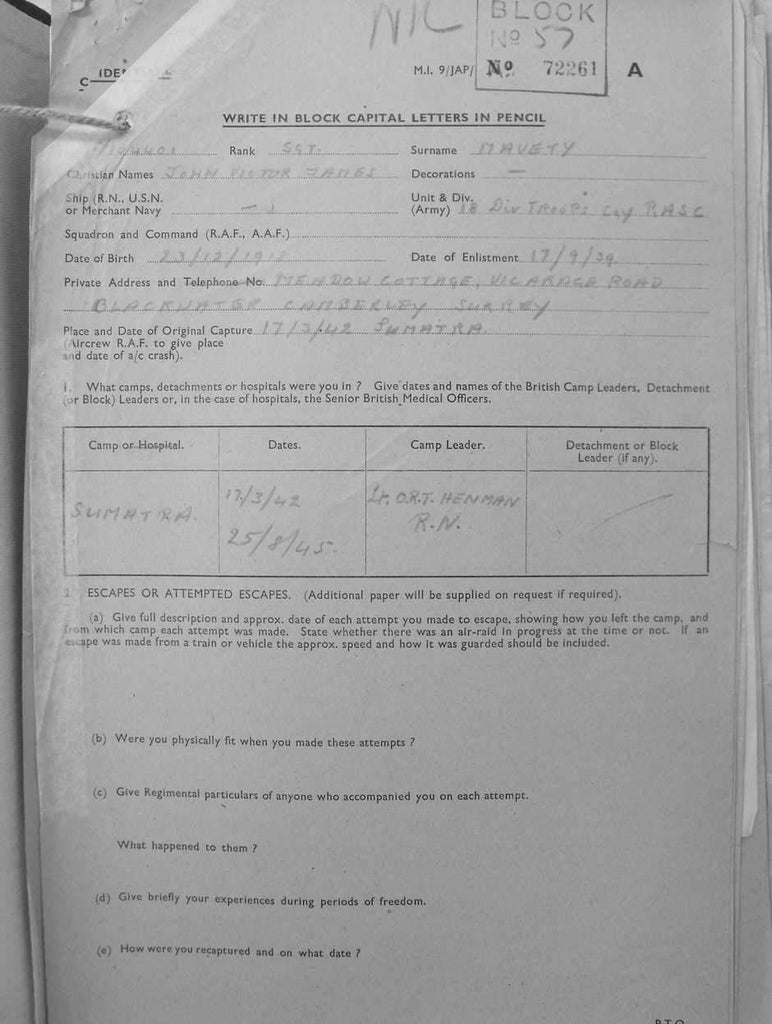 NIL
BLOCK
No 57
C
M.I. 9/JAP/ No. 72261 A
WRITE IN BLOCK CAPITAL LETTERS IN PENCIL
Rank SGT. Surname MAVETY
Christian Names JOHN VICTOR JAMES Decorations —
Ship (R.N., U.S.N. Unit & Div.
or Merchant Navy — (Army) 18 DIV TROOPS COY RASC
Squadron and Command (R.A.F., A.A.F.)
Date of Birth 23/12/1918 Date of Enlistment 17/9/39
Private Address and Telephone No. MEADOW COTTAGE, VICARAGE ROAD
BLACKWATER CAMBERLEY SURREY
Place and Date of Original Capture 17/3/42 SUMATRA
(Aircrew R.A.F. to give place
and date of a/c crash).
1. What camps, detachments or hospitals were you in ? Give dates and names of the British Camp Leaders, Detachment
(or Block) Leaders or, in the case of hospitals, the Senior British Medical Officers.
Camp or Hospital. Dates. Camp Leader. Detachment or Block
Leader (if any).
SUMATRA. 17/3/42 Lt. O.R.T. HENMAN
25/8/45. R.N.
2. ESCAPES OR ATTEMPTED ESCAPES. (Additional paper will be supplied on request if required).
(a) Give full description and approx. date of each attempt you made to escape, showing how you left the camp, and
from which camp each attempt was made. State whether there was an air-raid in progress at the time or not. If an
escape was made from a train or vehicle the approx. speed and how it was guarded should be included.
(b) Were you physically fit when you made these attempts ?
(c) Give Regimental particulars of anyone who accompanied you on each attempt.
What happened to them ?
(d) Give briefly your experiences during periods of freedom.
(e) How were you recaptured and on what date ?
P.T.O.